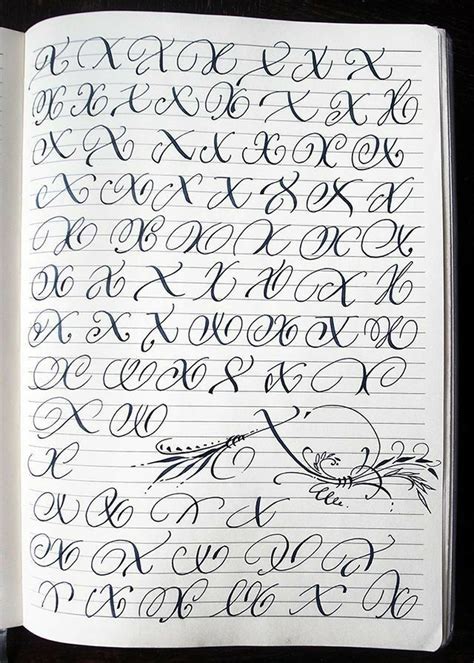 X X X X X X X
X X X X X X X X
X X X X X X X
X X X X X X X
X X X X X X X
X X X X X X X
X X X X X X X X X
X X X X X X
X X X
X
X X X X X
X X X X X X
X X X X X X X